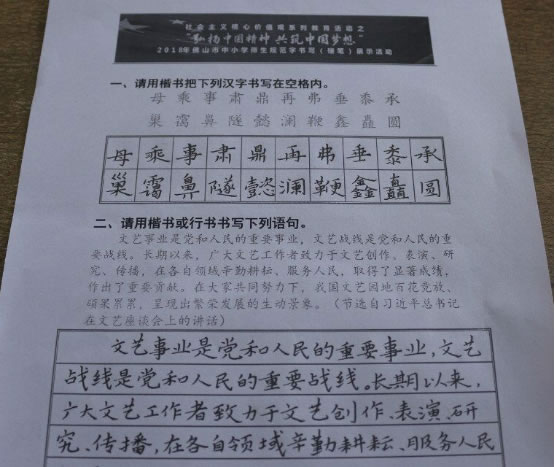 社会主义核心价值观系列教育活动之
“弘扬中国精神 共筑中国梦想”
2018年佛山市中小学师生规范字书写(硬笔)展示活动
一、请用楷书把下列汉字书写在空格内。
母 乘 事 肃 鼎 再 弗 垂 黍 承
巢 霭 鼻 隧 懿 澜 鞭 鑫 矗 圆
母 乘 事 肃 鼎 再 弗 垂 黍 承
巢 霭 鼻 隧 懿 澜 鞭 鑫 矗 圆
二、请用楷书或行书书写下列语句。
文艺事业是党和人民的重要事业，文艺战线是党和人民的重
要战线。长期以来，广大文艺工作者致力于文艺创作、表演、研
究、传播，在各自领域辛勤耕耘、服务人民，取得了显著成绩，
作出了重要贡献。在大家共同努力下，我国文艺园地百花竞放、
硕果累累，呈现出繁荣发展的生动景象。（节选自习近平总书记
在文艺座谈会上的讲话）
文艺事业是党和人民的重要事业，文艺
战线是党和人民的重要战线。长期以来，
广大文艺工作者致力于文艺创作、表演、研
究、传播，在各自领域辛勤耕耘、服务人民